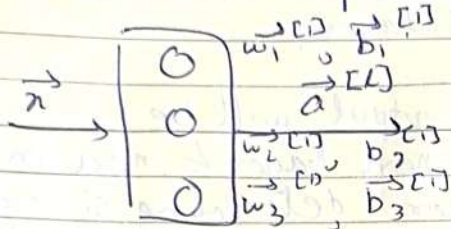 w⃗₁^[1], b⃗₁^[1]
a⃗^[1]
x⃗
w⃗₂^[1], b⃗₂^[1]
w⃗₃^[1], b⃗₃^[1]